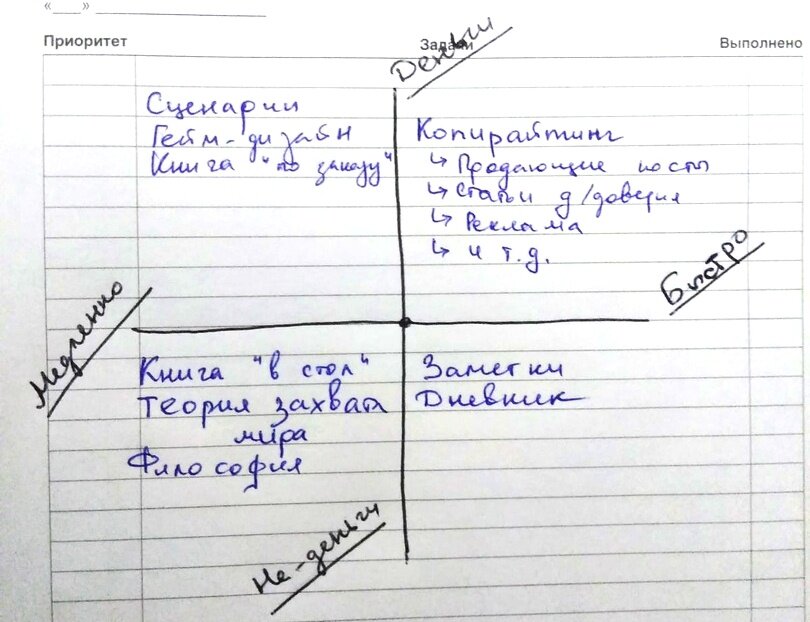 «___» ____________________
Приоритет Задачи Выполнено
Деньги
Сценарии
Гейм-дизайн
Книга "по заказу"
Копирайтинг
↳ Продающие посты
↳ Статьи д/доверия
↳ Реклама
↳ и т.д.
Медленно
Быстро
Книга "в стол"
Теория захвата
мира
Философия
Заметки
Дневник
Не-деньги